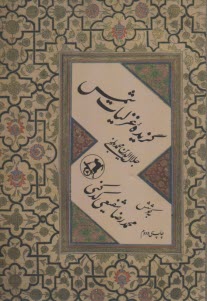 گزیدهٔ غزلیات شمس
جلال‌الدین محمد بلخی
بکوشش
محمدرضا شفیعی کدکنی
چاپ دوم